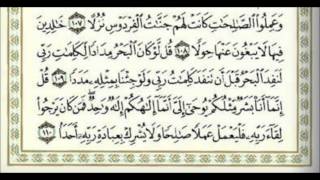 وَعَمِلُوا۟ ٱلصَّـٰلِحَـٰتِ كَانَتْ لَهُمْ جَنَّـٰتُ ٱلْفِرْدَوْسِ نُزُلًا ١٠٧ خَـٰلِدِينَ
فِيهَا لَا يَبْغُونَ عَنْهَا حِوَلًا ١٠٨ قُل لَّوْ كَانَ ٱلْبَحْرُ مِدَادًا لِّكَلِمَـٰتِ رَبِّى
لَنَفِدَ ٱلْبَحْرُ قَبْلَ أَن تَنفَدَ كَلِمَـٰتُ رَبِّى وَلَوْ جِئْنَا بِمِثْلِهِۦ مَدَدًا ١٠٩ قُلْ
إِنَّمَآ أَنَا۠ بَشَرٌ مِّثْلُكُمْ يُوحَىٰٓ إِلَىَّ أَنَّمَآ إِلَـٰهُكُمْ إِلَـٰهٌ وَٰحِدٌ فَمَن كَانَ يَرْجُوا۟
لِقَآءَ رَبِّهِۦ فَلْيَعْمَلْ عَمَلًا صَـٰلِحًا وَلَا يُشْرِكْ بِعِبَادَةِ رَبِّهِۦٓ أَحَدًۢا ١١٠